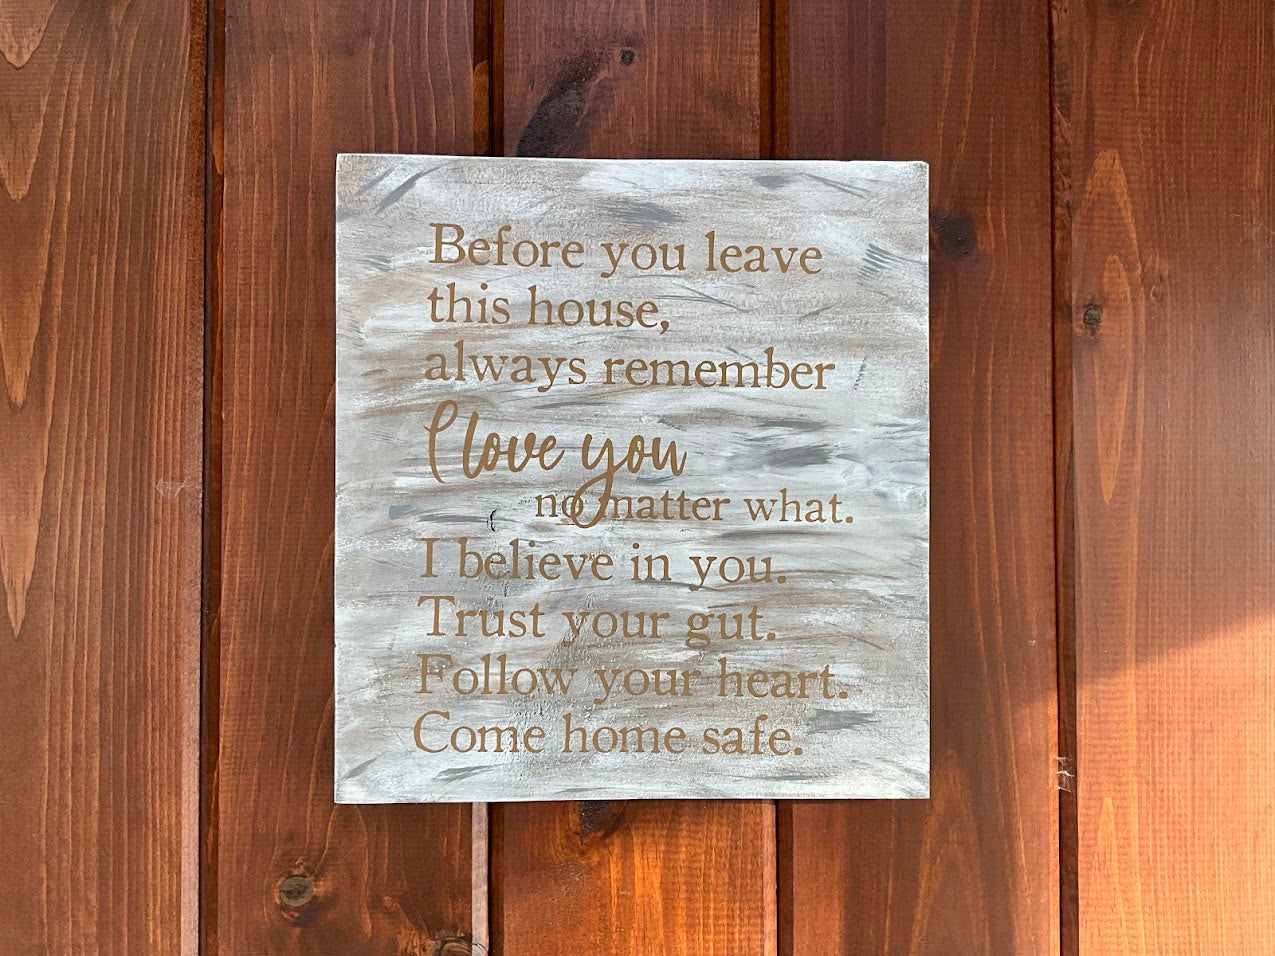 Before you leave
this house,
always remember
I love you
no matter what.
I believe in you.
Trust your gut.
Follow your heart.
Come home safe.